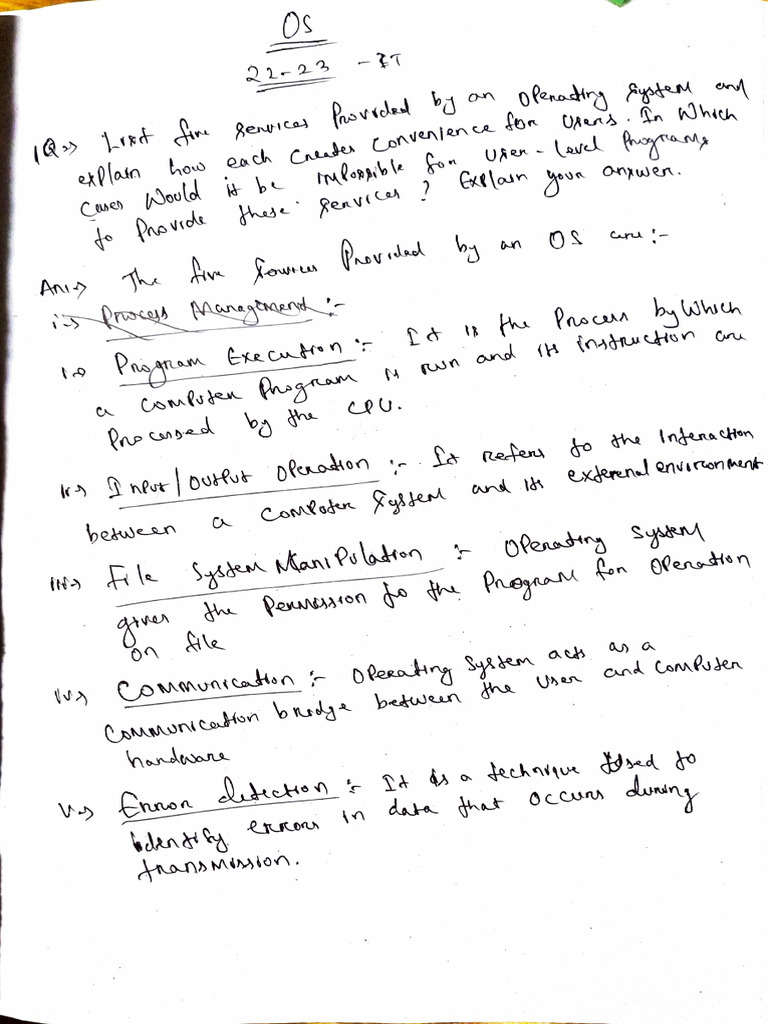 OS
22-23 - IT
1Q:-> List five services Provided by an Operating System and
explain how each creates convenience for users. In Which
cases Would it be impossible for user-level Programs
to Provide these services? Explain your answer.
Ans:-> The five services Provided by an OS are:-
i:-> Process Management:-
i:-> Program Execution:- It is the Process by Which
a computer Program is run and its instruction are
Processed by the CPU.
ii:-> Input/output operation:- It refers to the Interaction
between a computer System and its external environment
iii:-> File System Manipulation:- Operating System
gives the Permission to the Program for operation
on file
iv:-> Communication:- Operating System acts as a
Communication bridge between the user and computer
hardware
v:-> Error detection:- It is a technique Used to
identify errors in data that occurs during
transmission.